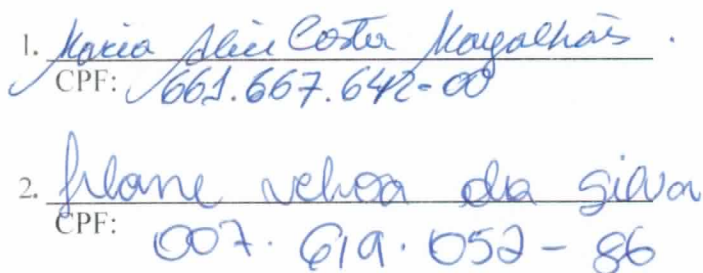 1. Maria Alice Costa Magalhães.
CPF: 661.667.642-00
2. da Silva
CPF: 007.619.052-86